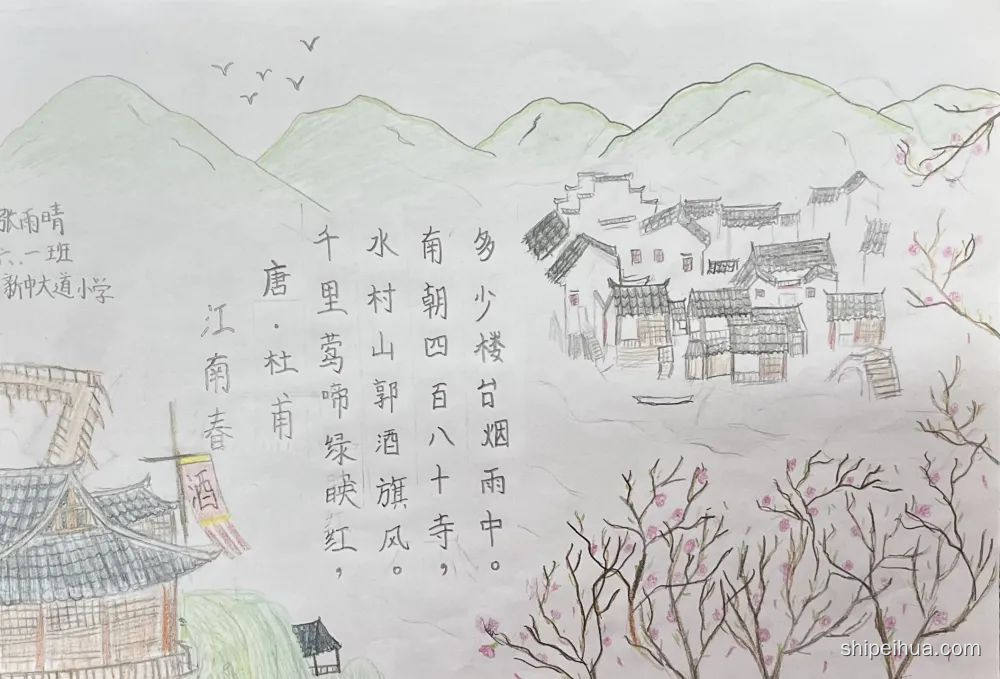 张雨晴
六、一班
新中大道小学
江南春
唐·杜甫
千里莺啼绿映红，
水村山郭酒旗风。
南朝四百八十寺，
多少楼台烟雨中。
酒
shipeihua.com